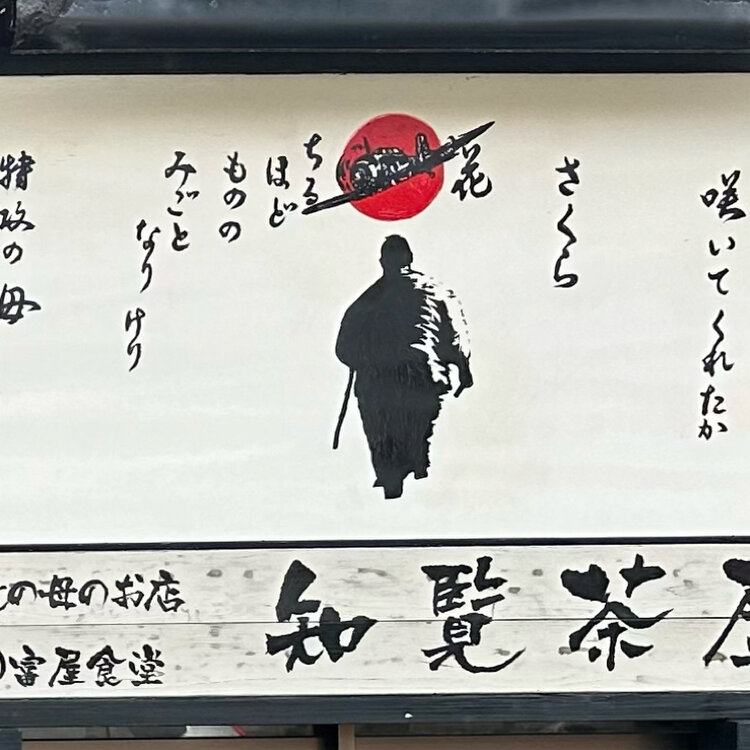 咲いてくれたか
さくら
花
ちる
ほど
ものの
みごと
なり けり
特攻の母
の母のお店
富屋食堂
知覧茶屋